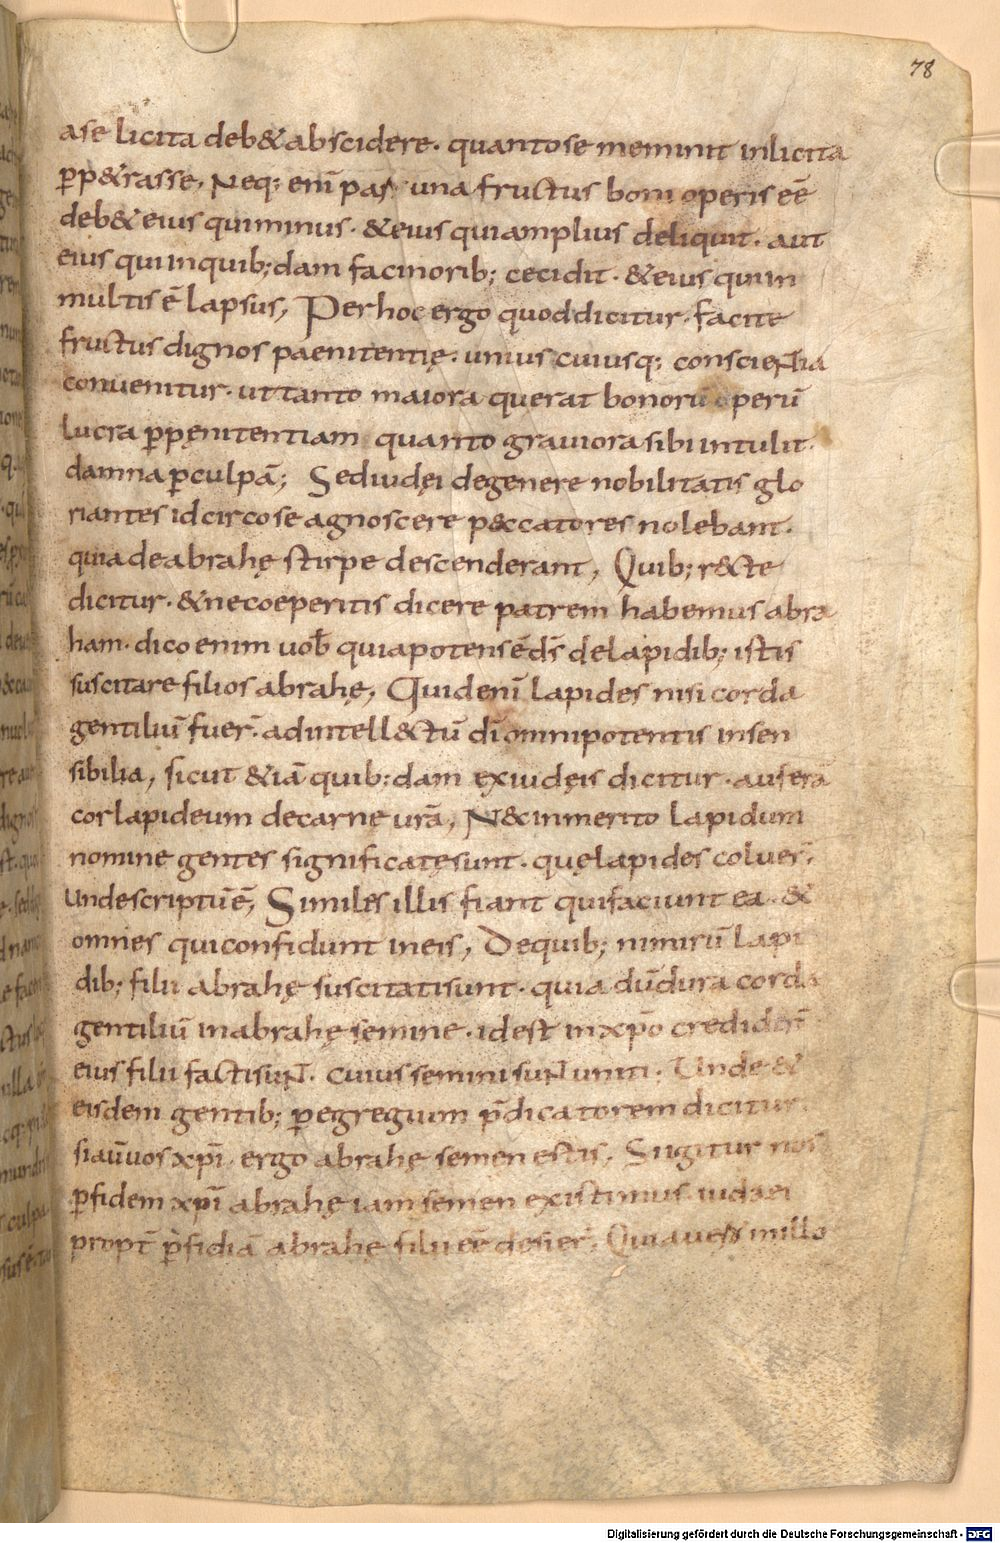 78
ase licita deb&abscidere. quantose meminit inlicita
p̄p&rasse, Neq; eni͞ par una fructus boni operis e͞e
deb& eius quiminus. &eius quiamplius deliquit. aut
eius quiinquib;dam facinorib; cecidit. &eius quiin
multis e͞ lapsus, Perhoc ergo quoddicitur. facite
fructus dignos paenitentię. unius cuiusq; conscientia
conuenitur. uttanto maiora querat bonoru͞ operu͞
lucra p̱pęnitentiam quanto grauiorasibi intulit.
damna p̱culpa͞; Sediudęi degenere nobilitatis glo
riantes idcircose agnoscere p&ccatores nolebant.
quia deabrahę stirpe descenderant, Quib; r&cte
dicitur. &necoeperitis dicere patrem habemus abra
ham. dico enim uob̄ quiapotens e͞ ds͞ delapidib; istis
suscitare filios abrahę, Quideni͞ lapides nisi corda
gentiliu͞ fuer͞. adintell&ctu͞ di͞ omnipotentis insen
sibilia, sicut &ia͞ quib;dam exiudęis dicitur. aufera͞
cor lapideum decarne ura͞, N&inmerito lapidum
nomine gentes significatęsunt. quęlapides coluer͞,
Undescriptu͞ e͞, Similes illis fiant quifaciunt ea. &
omnes quiconfidunt ineis, Dequib; nimiru͞ lapi
dib; filii abrahę suscitatisunt. quia du͞dura corda
gentiliu͞ inabrahę semine. idest inxp͞o credider͞
eius filii factisuNt. cuius semini suNt uniti. Unde &
eisdem gentib; p̱egregium p͞dicatorem dicitur.
siau͞uos xp͞i. ergo abrahę semen estis, Siigitur nos
p̱fidem xp͞i abrahę iam semen existimus. iudaei
propt͞ p̱fidia͞ abrahę filii e͞e desier͞, Quia uero inillo
Digitalisierung gefördert durch die Deutsche Forschungsgemeinschaft - DFG